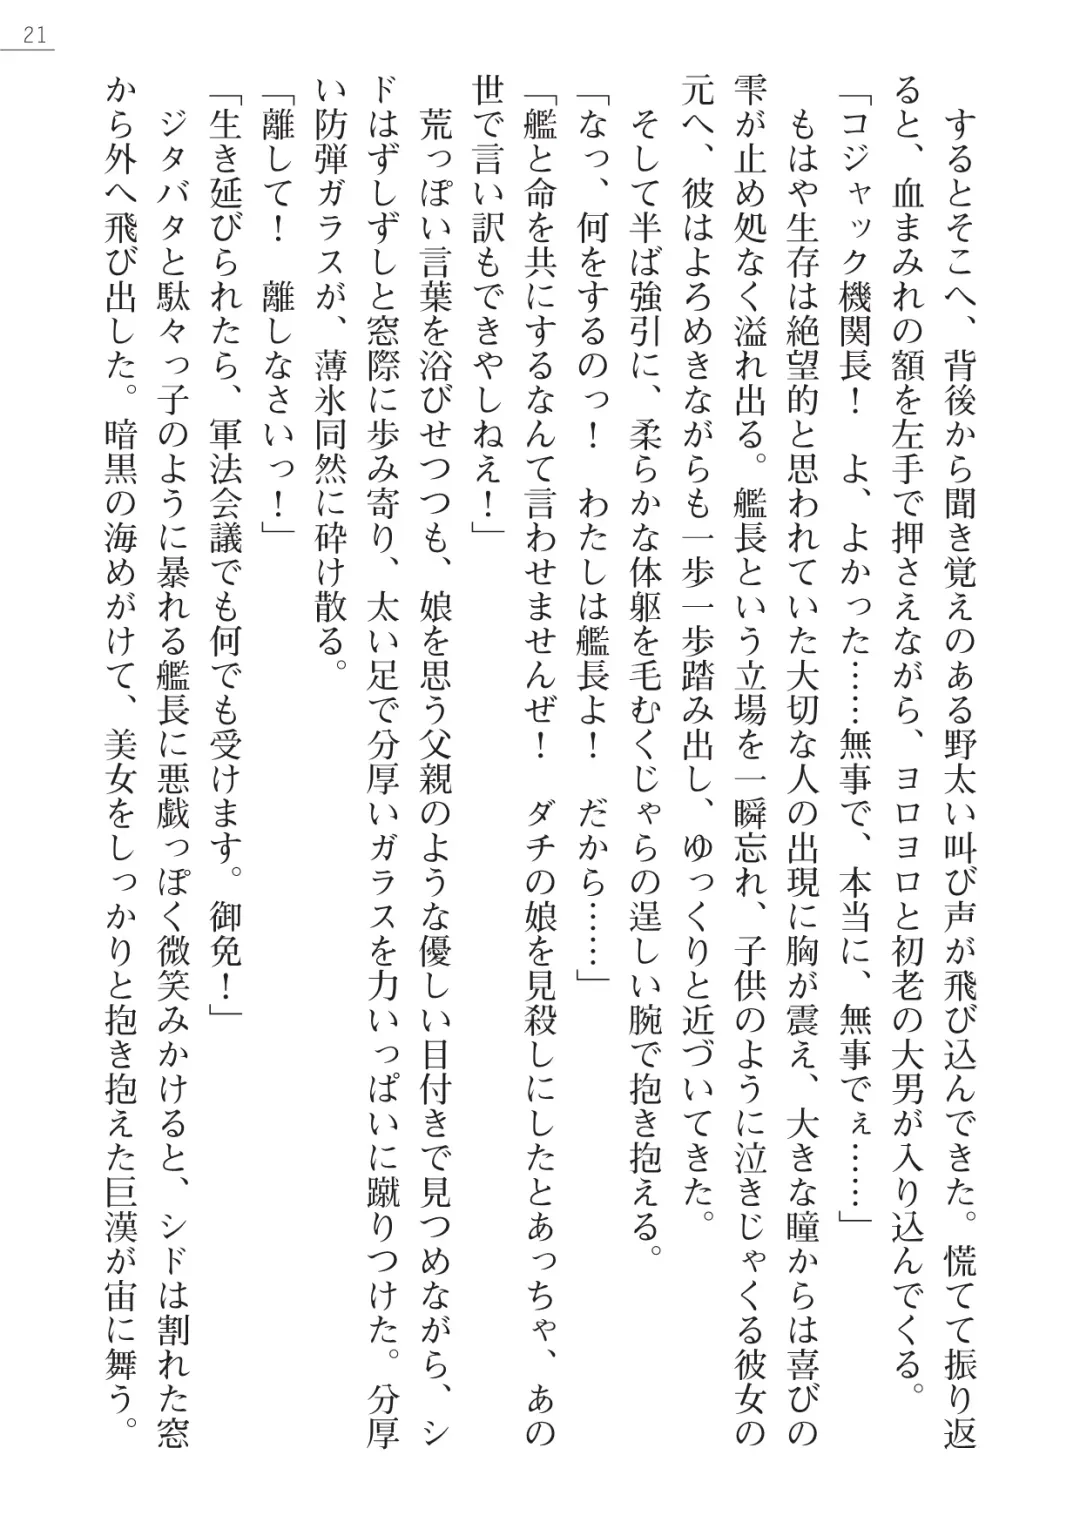 21
　するとそこへ、背後から聞き覚えのある野太い叫び声が飛び込んできた。慌てて振り返
ると、血まみれの額を左手で押さえながら、ヨロヨロと初老の大男が入り込んでくる。
「コジャック機関長！　よ、よかった……無事で、本当に、無事でぇ……」
　もはや生存は絶望的と思われていた大切な人の出現に胸が震え、大きな瞳からは喜びの
雫が止め処なく溢れ出る。艦長という立場を一瞬忘れ、子供のように泣きじゃくる彼女の
元へ、彼はよろめきながらも一歩一歩踏み出し、ゆっくりと近づいてきた。
　そして半ば強引に、柔らかな体躯を毛むくじゃらの逞しい腕で抱き抱える。
「なっ、何をするのっ！　わたしは艦長よ！　だから……」
「艦と命を共にするなんて言わせませんぜ！　ダチの娘を見殺しにしたとあっちゃ、あの
世で言い訳もできやしねえ！」
　荒っぽい言葉を浴びせつつも、娘を思う父親のような優しい目付きで見つめながら、シ
ドはずしずしと窓際に歩み寄り、太い足で分厚いガラスを力いっぱいに蹴りつけた。分厚
い防弾ガラスが、薄氷同然に砕け散る。
「離して！　離しなさいっ！」
「生き延びられたら、軍法会議でも何でも受けます。御免！」
　ジタバタと駄々っ子のように暴れる艦長に悪戯っぽく微笑みかけると、シドは割れた窓
から外へ飛び出した。暗黒の海めがけて、美女をしっかりと抱き抱えた巨漢が宙に舞う。